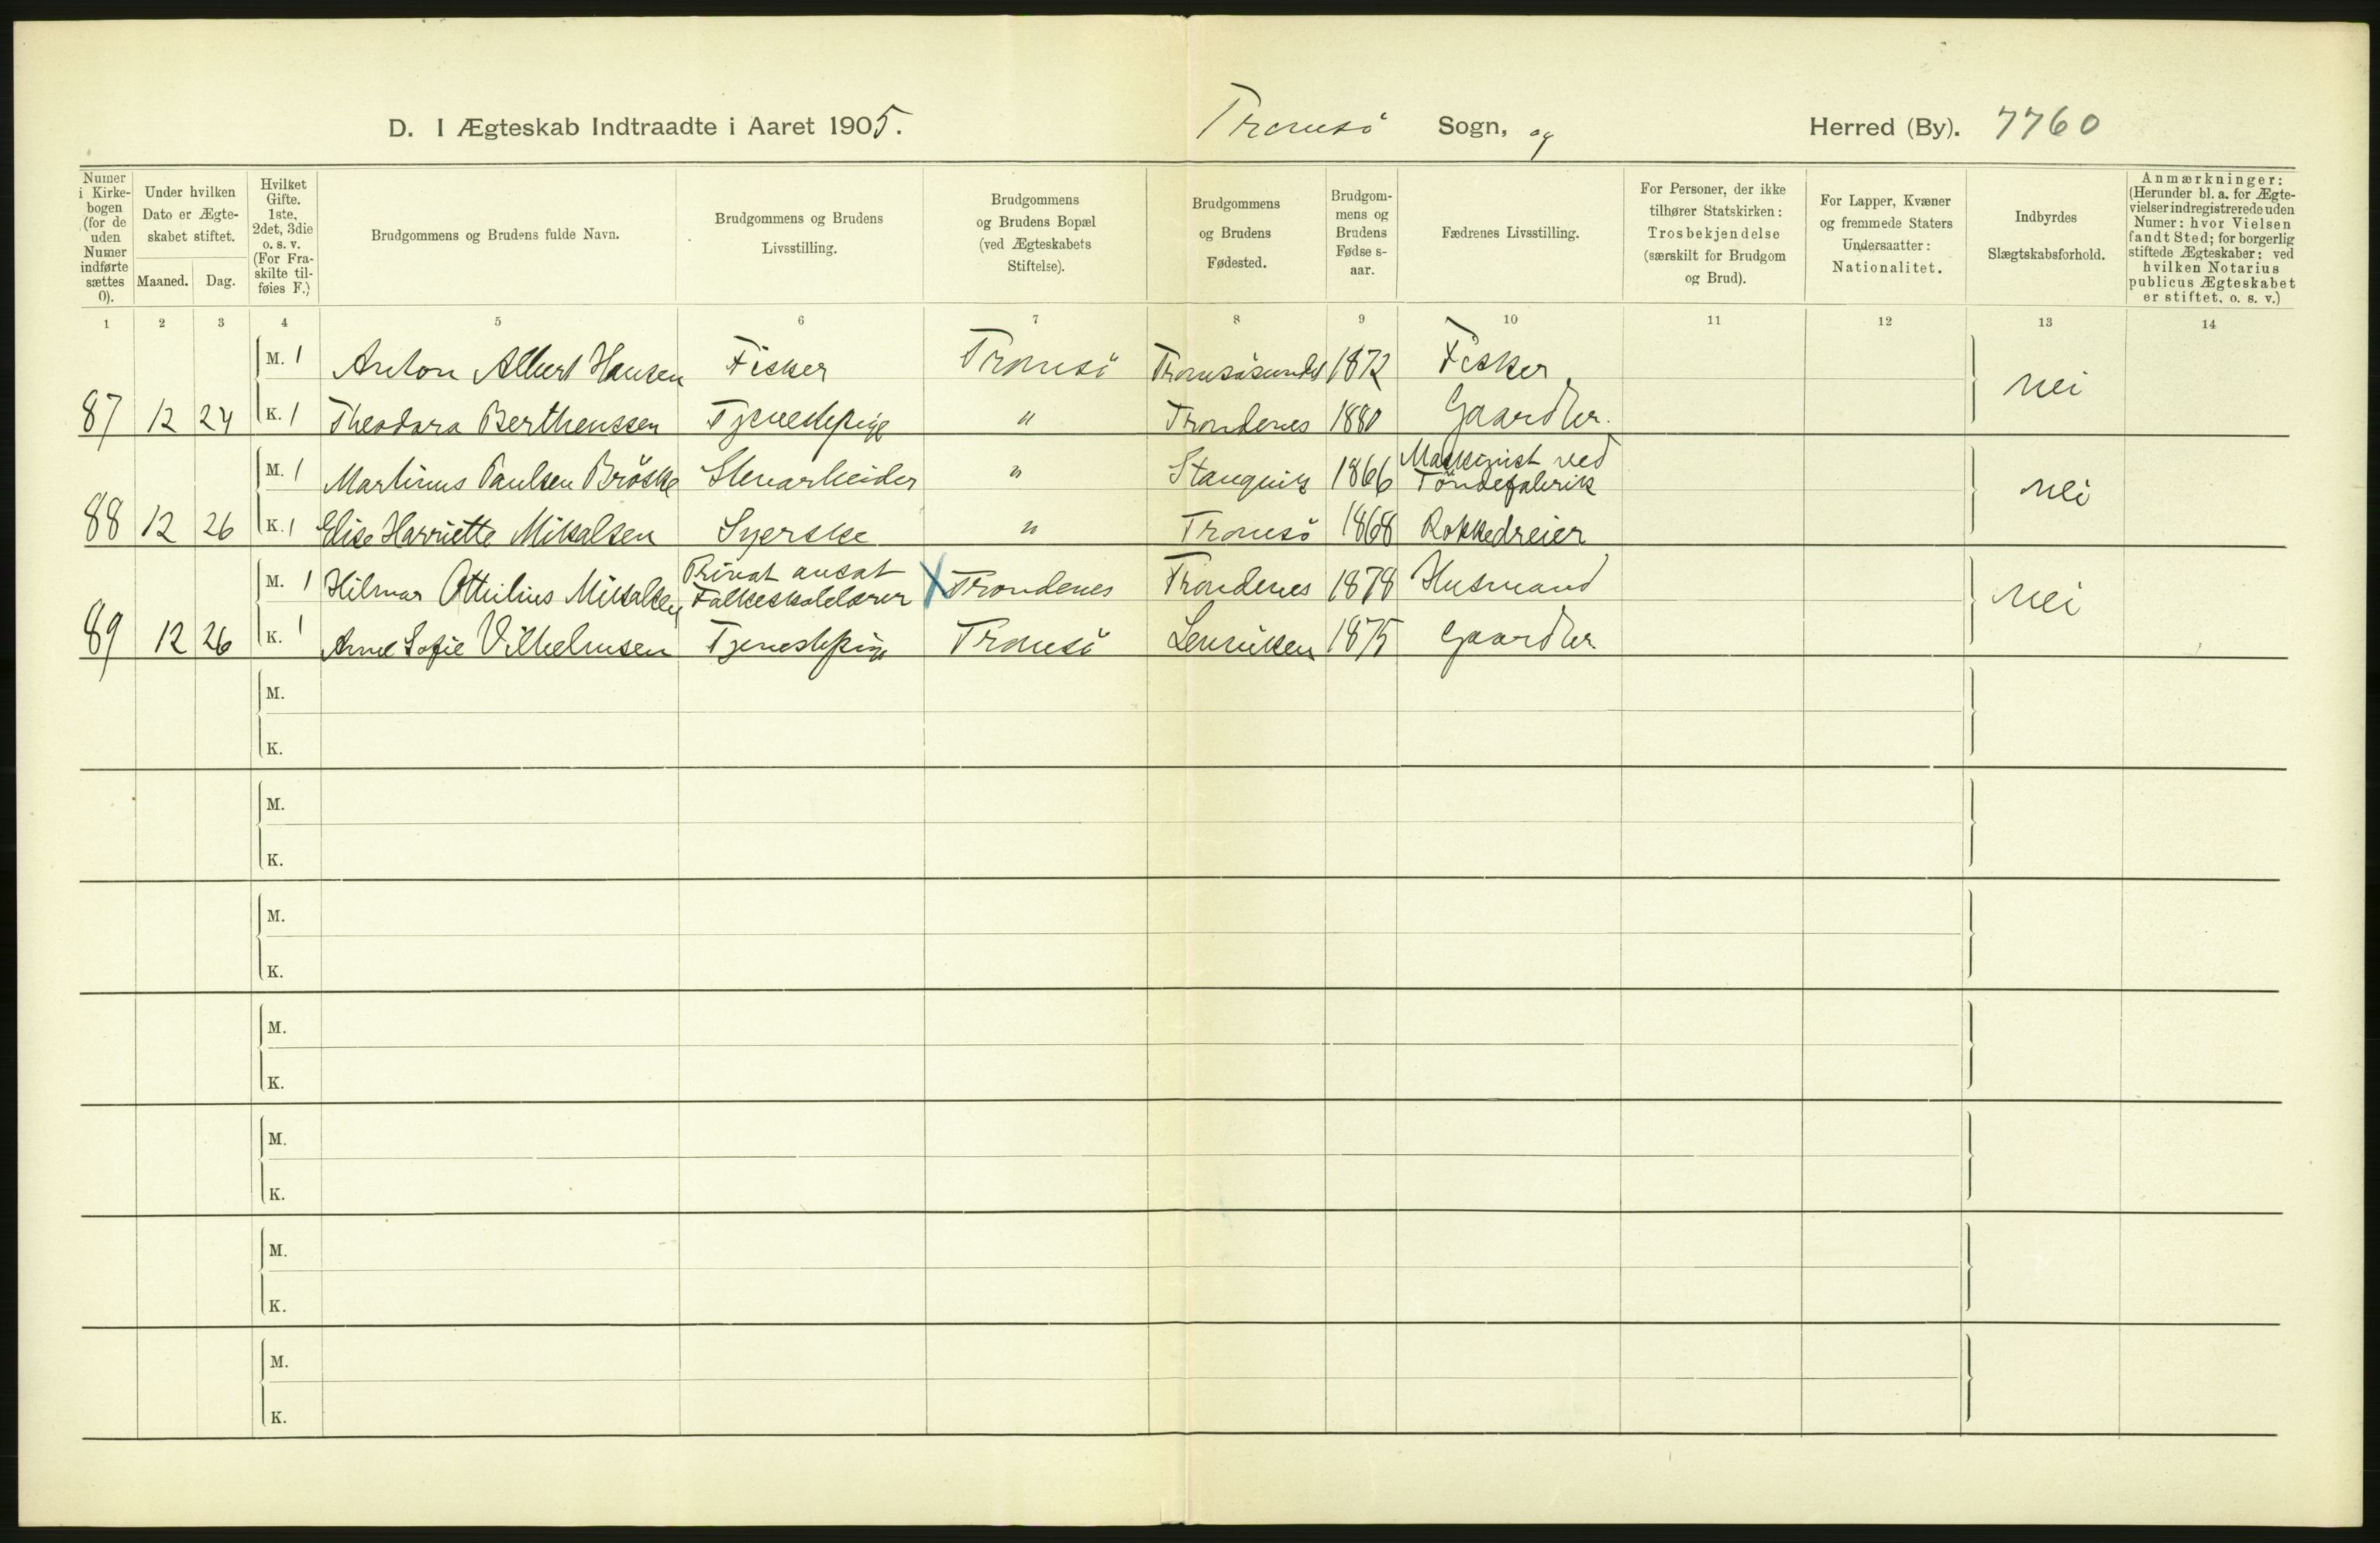 D. I Ægteskab Indtraadte i Aaret 1905. Tromsö Sogn, og Herred (By). 7760
Numer i Kirke-bogen (for de uden Numer indførte sættes 0).
Under hvilken Dato er Ægte-skabet stiftet.
Maaned. Dag.
Hvilket Gifte. 1ste, 2det, 3die o. s. v. (For Fra-skilte til-føies F.)
Brudgommens og Brudens fulde Navn.
Brudgommens og Brudens Livsstilling.
Brudgommens og Brudens Bopæl (ved Ægteskabets Stiftelse).
Brudgommens og Brudens Fødested.
Brudgom-mens og Brudens Fødse s-aar.
Fædrenes Livsstilling.
For Personer, der ikke tilhører Statskirken: Trosbekjendelse (særskilt for Brudgom og Brud).
For Lapper, Kvæner og fremmede Staters Undersaatter: Nationalitet.
Indbyrdes Slægtskabsforhold.
Anmærkninger: (Herunder bl. a. for Ægte-vielser indregistrerede uden Numer: hvor Vielsen fandt Sted; for borgerlig stiftede Ægteskaber: ved hvilken Notarius publicus Ægteskabet er stiftet, o. s. v.)
1 2 3 4 5 6 7 8 9 10 11 12 13 14
M. 1 Anton Albert Hansen Fisker Tromsö Tromsösundet 1872 Fisker nei
87 12 24 K. 1 Theodora Berthenssen Tjenestepige " Trondenes 1880 Gaardbr.
M. 1 Martinus Paulsen Bröske Stenarbeider " Stangvik 1866 Maskinist ved Töndefabrik nei
88 12 26 K. 1 Elise Harriette Mikalsen Syerske " Tromsö 1868 Rokkedreier
M. 1 Hilmar Ottilius Mikalsen Privat ansat Folkeskolelærer X Trondenes Trondenes 1878 Husmand nei
89 12 26 K. 1 Anne Sofie Vilhelmsen Tjenestepige Tromsö Lenviken 1875 Gaardbr
M.
K.
M.
K.
M.
K.
M.
K.
M.
K.
M.
K.
M.
K.